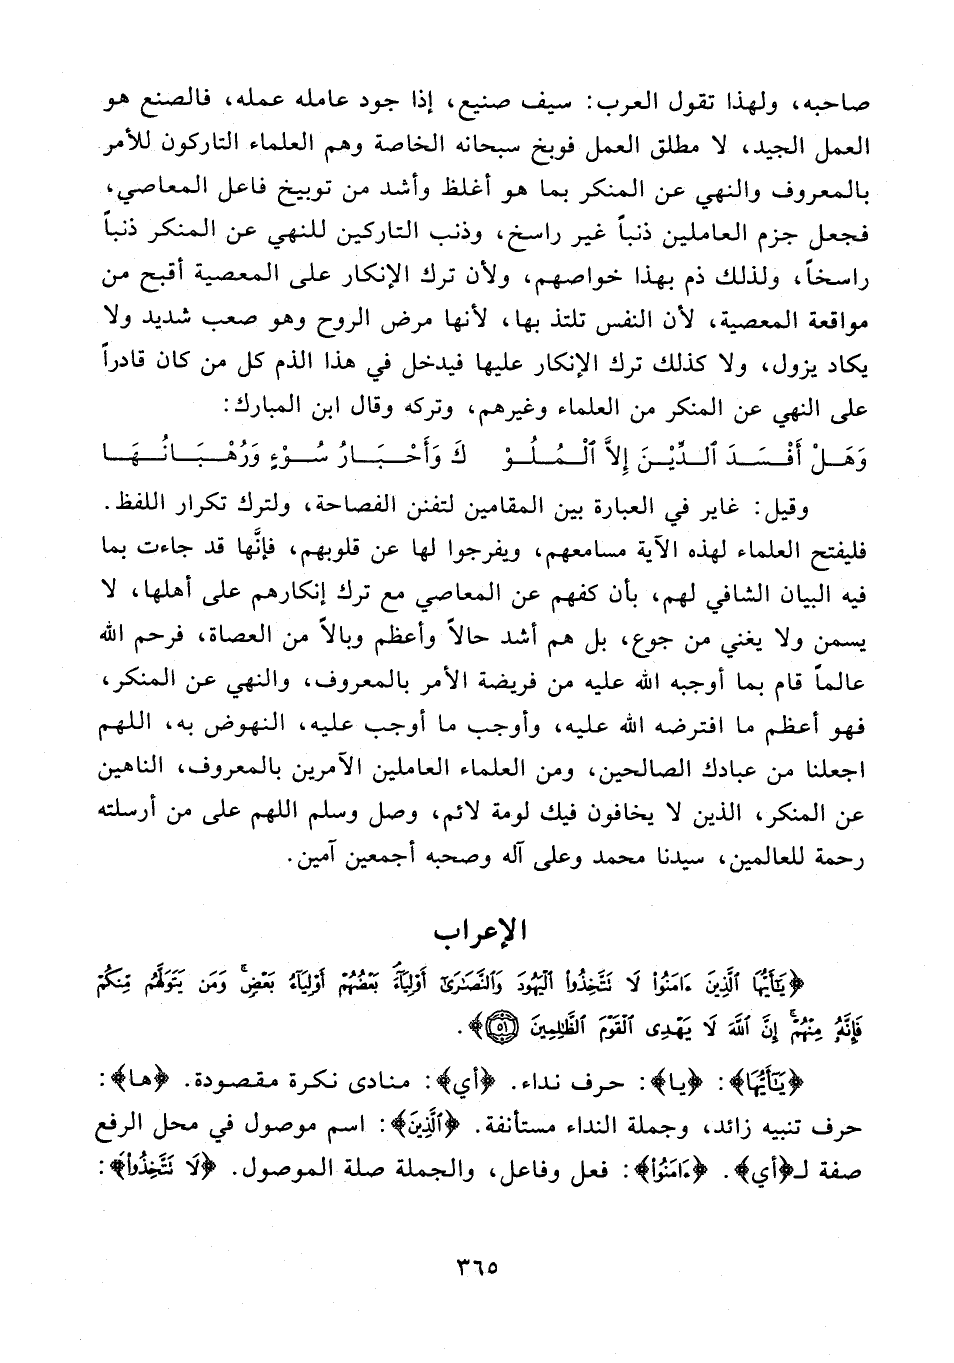 صاحبه، ولهذا تقول العرب: سيف صنيع، إذا جود عامله عمله، فالصنع هو
العمل الجيد، لا مطلق العمل فوبخ سبحانه الخاصة وهم العلماء التاركون للأمر
بالمعروف والنهي عن المنكر بما هو أغلظ وأشد من توبيخ فاعل المعاصي،
فجعل جزم العاملين ذنباً غير راسخ، وذنب التاركين للنهي عن المنكر ذنباً
راسخاً، ولذلك ذم بهذا خواصهم، ولأن ترك الإنكار على المعصية أقبح من
مواقعة المعصية، لأن النفس تلتذ بها، لأنها مرض الروح وهو صعب شديد ولا
يكاد يزول، ولا كذلك ترك الإنكار عليها فيدخل في هذا الذم كل من كان قادراً
على النهي عن المنكر من العلماء وغيرهم، وتركه وقال ابن المبارك:
وَهَلْ أَفْسَدَ ٱلدِّيْنَ إِلاَّ ٱلْمُلُوْ كَ وَأَحْبَارُ سُوْءٍ وَرُهْبَانُهَا
وقيل: غاير في العبارة بين المقامين لتفنن الفصاحة، ولترك تكرار اللفظ.
فليفتح العلماء لهذه الآية مسامعهم، ويفرجوا لها عن قلوبهم، فإنَّها قد جاءت بما
فيه البيان الشافي لهم، بأن كفهم عن المعاصي مع ترك إنكارهم على أهلها، لا
يسمن ولا يغني من جوع، بل هم أشد حالاً وأعظم وبالاً من العصاة، فرحم الله
عالماً قام بما أوجبه الله عليه من فريضة الأمر بالمعروف، والنهي عن المنكر،
فهو أعظم ما افترضه الله عليه، وأوجب ما أوجب عليه، النهوض به، اللهم
اجعلنا من عبادك الصالحين، ومن العلماء العاملين الآمرين بالمعروف، الناهين
عن المنكر، الذين لا يخافون فيك لومة لائم، وصل وسلم اللهم على من أرسلته
رحمة للعالمين، سيدنا محمد وعلى آله وصحبه أجمعين آمين.
الإعراب
﴿يَـٰٓأَيُّهَا ٱلَّذِينَ ءَامَنُوا۟ لَا تَتَّخِذُوا۟ ٱلْيَهُودَ وَٱلنَّصَـٰرَىٰٓ أَوْلِيَآءَ ۘ بَعْضُهُمْ أَوْلِيَآءُ بَعْضٍ ۚ وَمَن يَتَوَلَّهُم مِّنكُمْ
فَإِنَّهُۥ مِنْهُمْ ۗ إِنَّ ٱللَّهَ لَا يَهْدِى ٱلْقَوْمَ ٱلظَّـٰلِمِينَ ٥١﴾.
﴿يَـٰٓأَيُّهَا﴾: ﴿يا﴾: حرف نداء. ﴿أي﴾: منادى نكرة مقصودة. ﴿ها﴾:
حرف تنبيه زائد، وجملة النداء مستأنفة. ﴿ٱلَّذِينَ﴾: اسم موصول في محل الرفع
صفة لـ﴿أي﴾. ﴿ءَامَنُوا۟﴾: فعل وفاعل، والجملة صلة الموصول. ﴿لَا تَتَّخِذُوا۟﴾:
٣٦٥